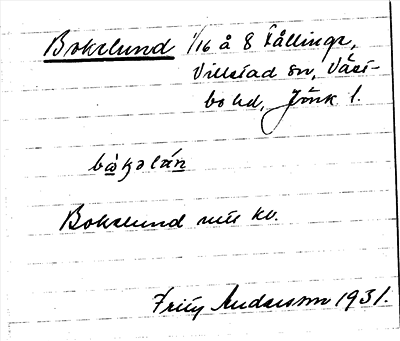 Bokelund 1/16 å 8 Kållinge,
Villstad sn, Väst-
bo hd, Jönk l.
Bokelund mis kv.
Fritz Andersson 1931.